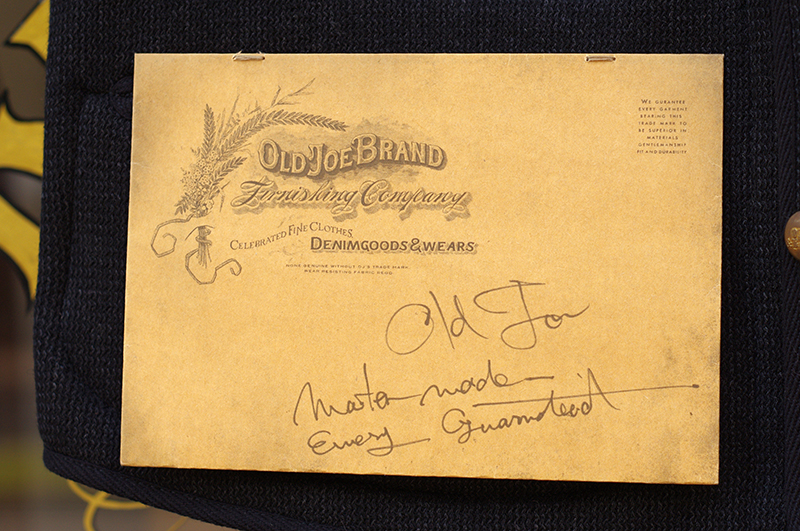 OLD JOE BRAND
Firnishing Company
CELEBRATED FINE CLOTHES
DENIMGOODS & WEARS
NONE GENUINE WITHOUT OJ'S TRADE MARK.
WE GURANTEE
EVERY GAPMENT
BEARING THIS
TRADE MARK TO
BE SUPERIOR IN
MATERIALS
GENTLEMANSHIP
FIT AND DURABILITY
Old Joe
Master made
Every Guaranteed